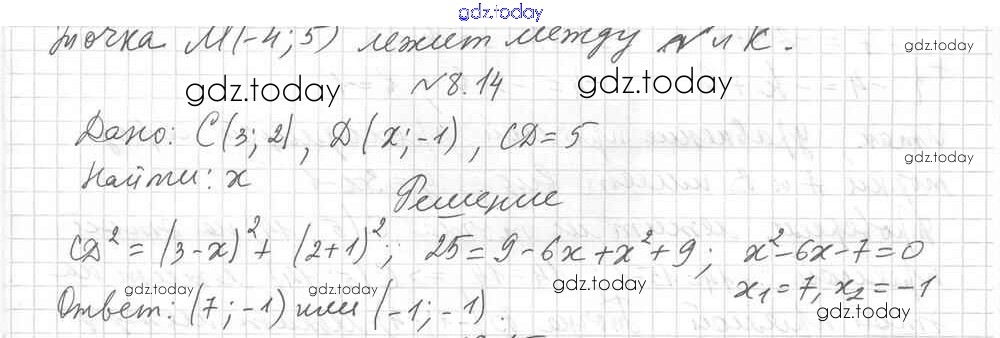 gdz.today
точка М(-4; 5) лежит между N и K.
gdz.today
№8.14
gdz.today gdz.today
Дано: C(3; 2), D(x; -1), CD = 5
gdz.today
Найти: x
Решение
CD² = (3-x)² + (2+1)²; 25 = 9 - 6x + x² + 9; x² - 6x - 7 = 0
x₁ = 7, x₂ = -1
gdz.today gdz.today gdz.today
Ответ: (7; -1) или (-1; -1).
gdz.today